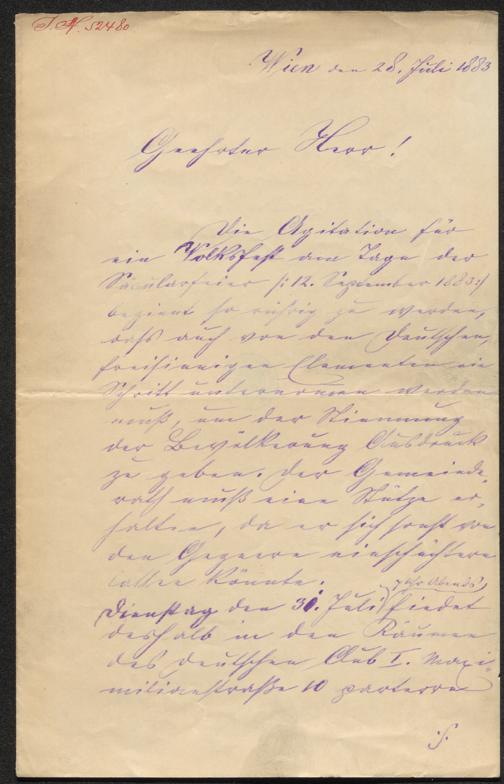 I. N. 52480
Wien den 28. Juli 1883
Geehrter Herr!
Die Agitation für
ein Volksfest am Tage der
Säcularfeier /:12. September 1883:/
beginnt so rührig zu werden,
daß auch von den deutschen,
freisinnigen Elementen ein
Schritt unternommen werden
muß, um der Stimmung
der Bevölkerung Ausdruck
zu geben. Der Gemeinde-
rath muß eine Stütze er-
halten, da er sich sonst von
den Gegnern einschüchtern
lassen könnte.
Dienstag den 31. Juli 7 Uhr Abends, findet
deshalb in den Räumen
des deutschen Club I. Maxi-
milianstraße 10 parterre